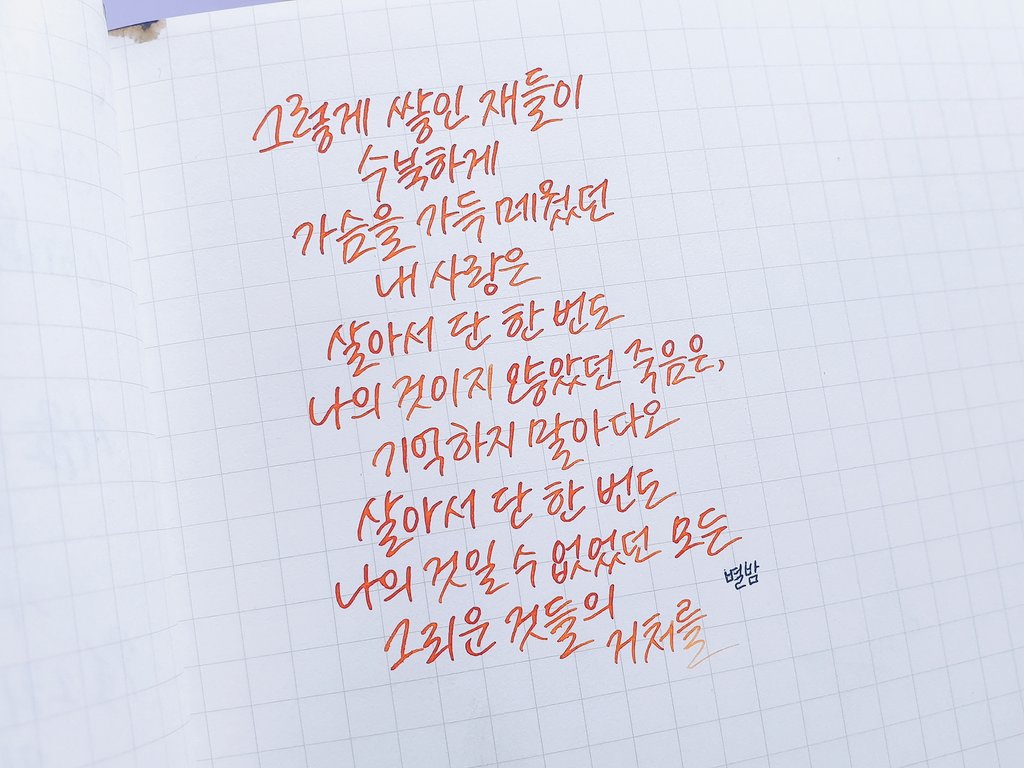 그렇게 쌓인 재들이
수북하게
가슴을 가득 메웠던
내 사랑은
살아서 단 한 번도
나의 것이지 않았던 죽음은,
기억하지 말아다오
살아서 단 한 번도
나의 것일 수 없었던 모든
그리운 것들의 거처를
별밤